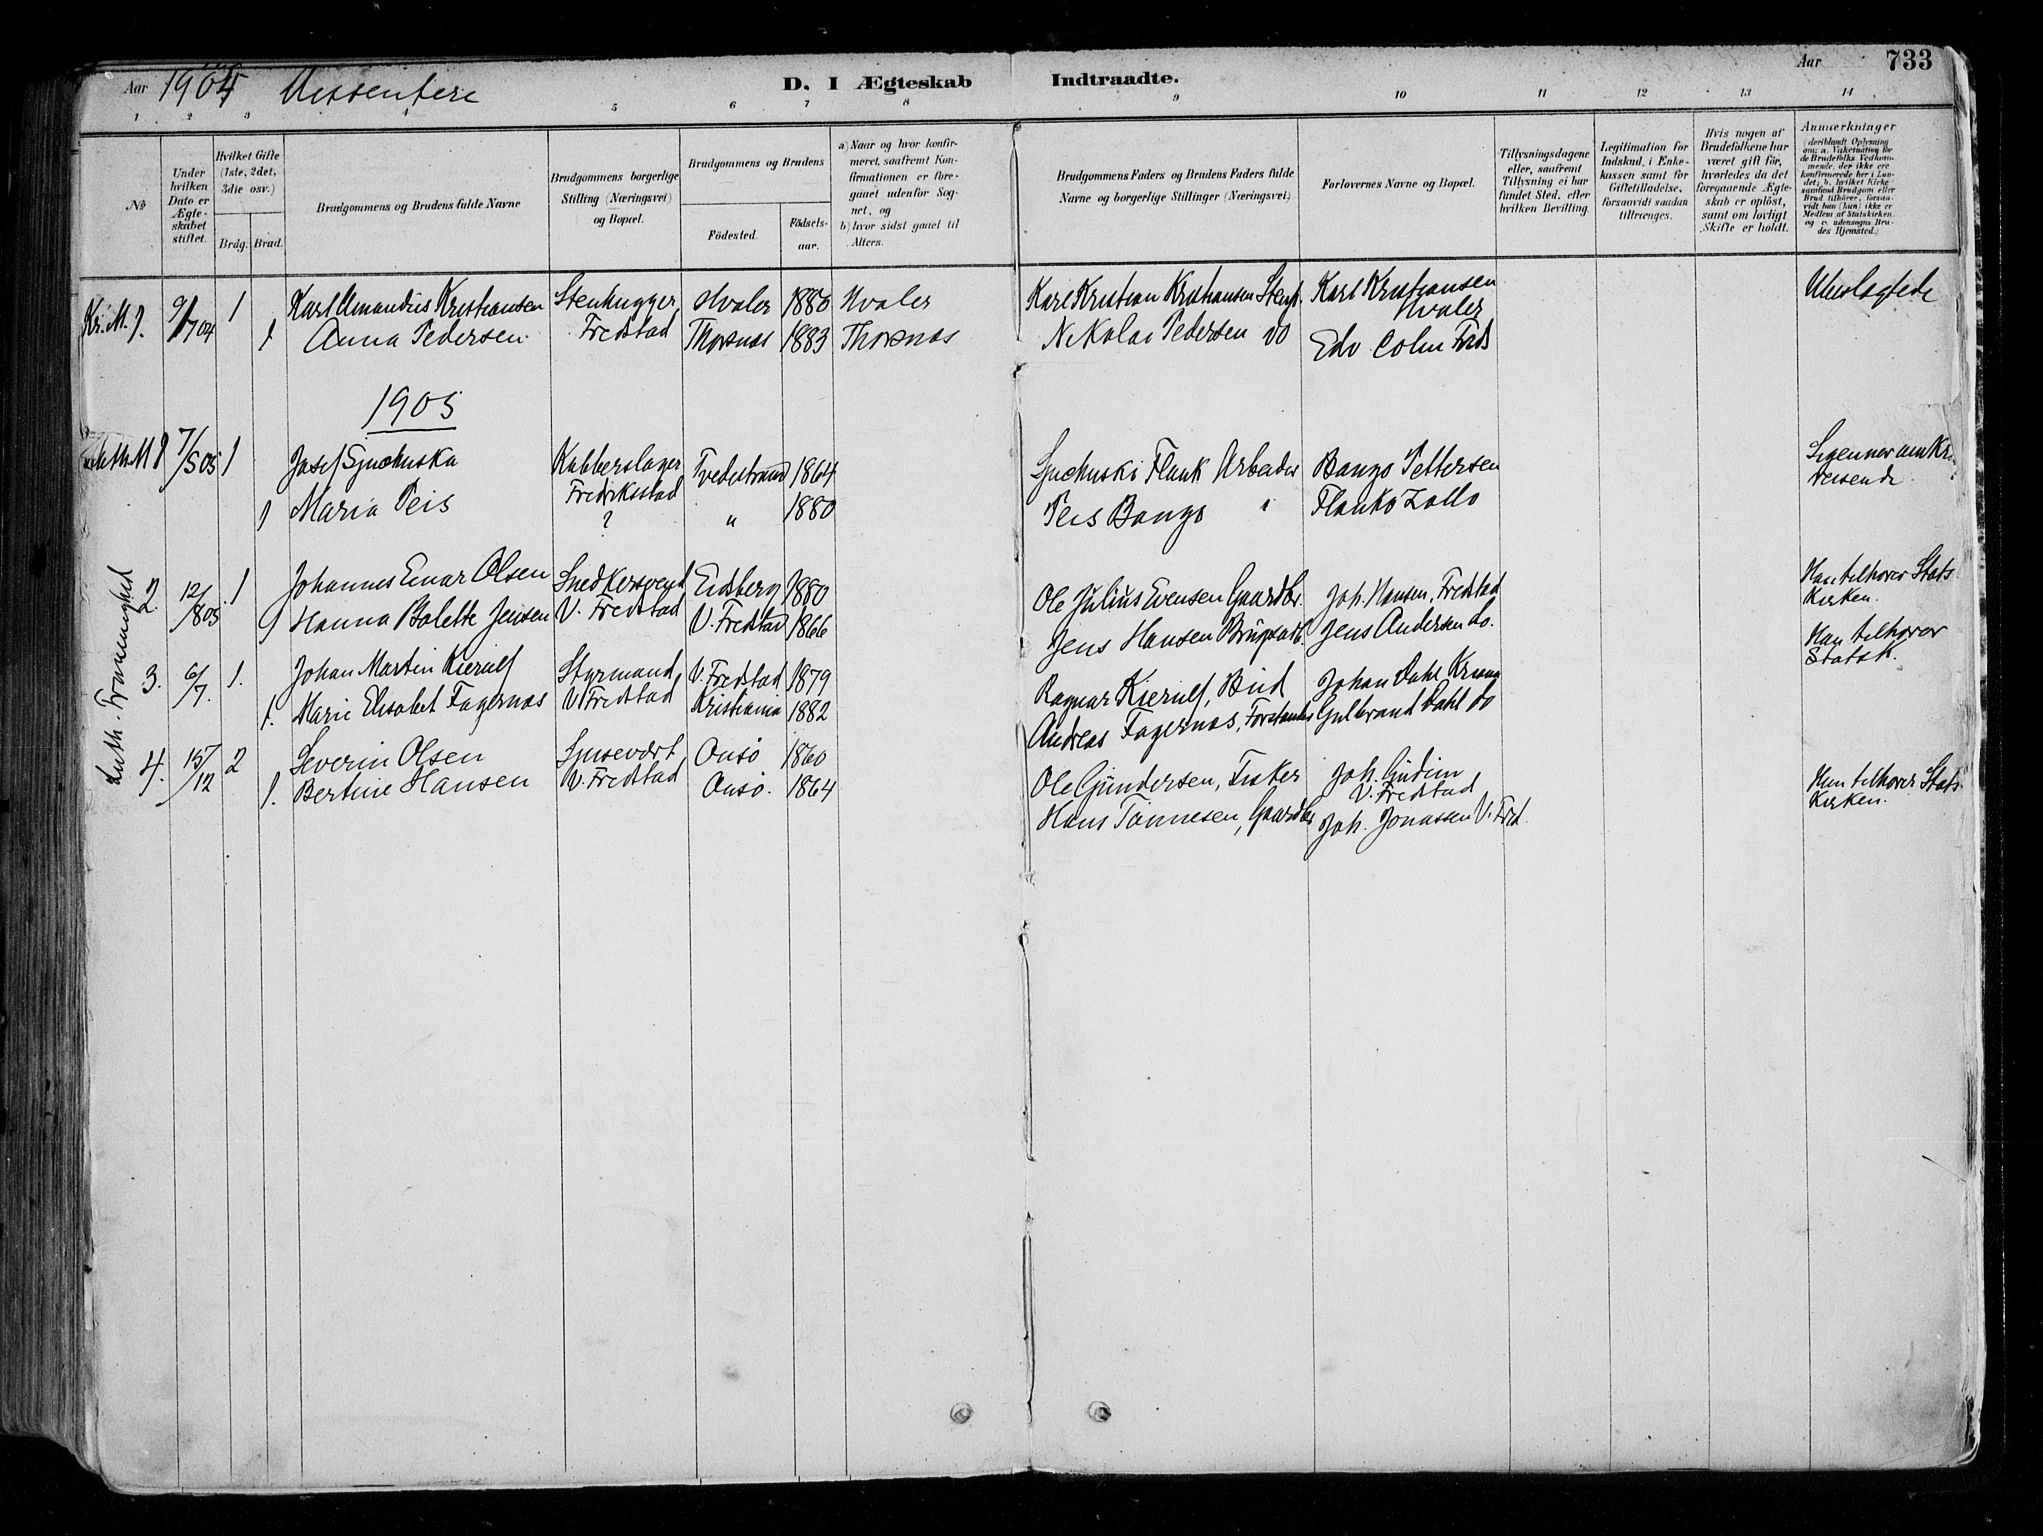 Aar 1904 Dissentere
D. I Ægteskab Indtraadte.
Aar 733
1 2 3 4 5 6 7 8 9 10 11 12 13 14
No
Under hvilken Dato er Ægteskabet stiftet.
Hvilket Gifte (1ste, 2det, 3die osv.)
Brdg. Brud.
Brudgommens og Brudens fulde Navne
Brudgommens borgerlige Stilling (Næringsvei) og Bopæl.
Brudgommens og Brudens
Födested. Födsels-aar.
a) Naar og hvor konfirmeret, saafremt Konfirmationen er foregaaet udenfor Sognet, og
b) hvor sidst gaaet til Alters.
Brudgommens Faders og Brudens Faders fulde Navne og borgerlige Stillinger (Næringsvei)
Forlovernes Navne og Bopæl.
Tillysningsdagene eller, saafremt Tillysning ei har fundet Sted, efter hvilken Bevilling.
Legitimation for Indskud i Enkekassen samt for Giftetilladelse, forsaavidt saadan tiltrænges.
Hvis nogen af Brudefolkene har været gift för, hvorledes da det foregaaende Ægteskab er oplöst, samt om lovligt Skifte er holdt.
Anmærkninger (deriblandt Oplysning om: a. Vakcination for de Brudefolks Vedkommende, der ikke ere konfirmerede her i Landet; b. hvilket Kirkesamfund Brudgom eller Brud tilhörer, forsaavidt han (hun) ikke er Medlem af Statskirken, og c. udensogns Brudes Hjemsted.)
9/7 04 1 Karl Amandus Kristiansen Stenhugger Hvaler 1880 Hvaler Karl Kristian Kristiansen Stenh. Karl Kristiansen Hvaler
Fredstad
1 Anna Pedersen Thorsnæs 1883 Thorsnæs Nikolai Pedersen do Edv Colin Freds
1905
7/5 05 1 Josef Kobberslager Fredriksstad Tvedestrand 1864 Flank Arbeider Bango Pettersen
1 Maria Peis ? " 1880 Peis Bango Flanko Zollo
reisende
Luth. Framenighed
2. 12/8 05 1 Johannes Einar Olsen Snedkersvend Eidsberg 1880 Ole Julius Evensen Gaardbr. Joh. Hansen, Fredstad Han tilhører Stats
V. Fredstad Kirken.
Hanna Bolette Jensen V. Fredstad 1866 Jens Hansen Jens Andersen do.
3. 6/7. 1. Johan Martin Kierulf Styrmand V. Fredstad 1879 Ragnar Kierulf, Johan Dahl Han tilhører Statsk.
V. Fredstad
1. Marie Elisabet Fagernæs Kristiania 1882 Andreas Fagernæs, Forstander Gulbrand Dahl do
4. 15/12 2 Severin Olsen Onsø 1860 Ole Gundersen, Fisker Joh. V. Fredstad Han tilhører Stats
V. Fredstad Kirken.
1. Bertine Hansen Onsø. 1864 Hans Tønnesen, Gaardbr Joh. Jonassen V. Fred.